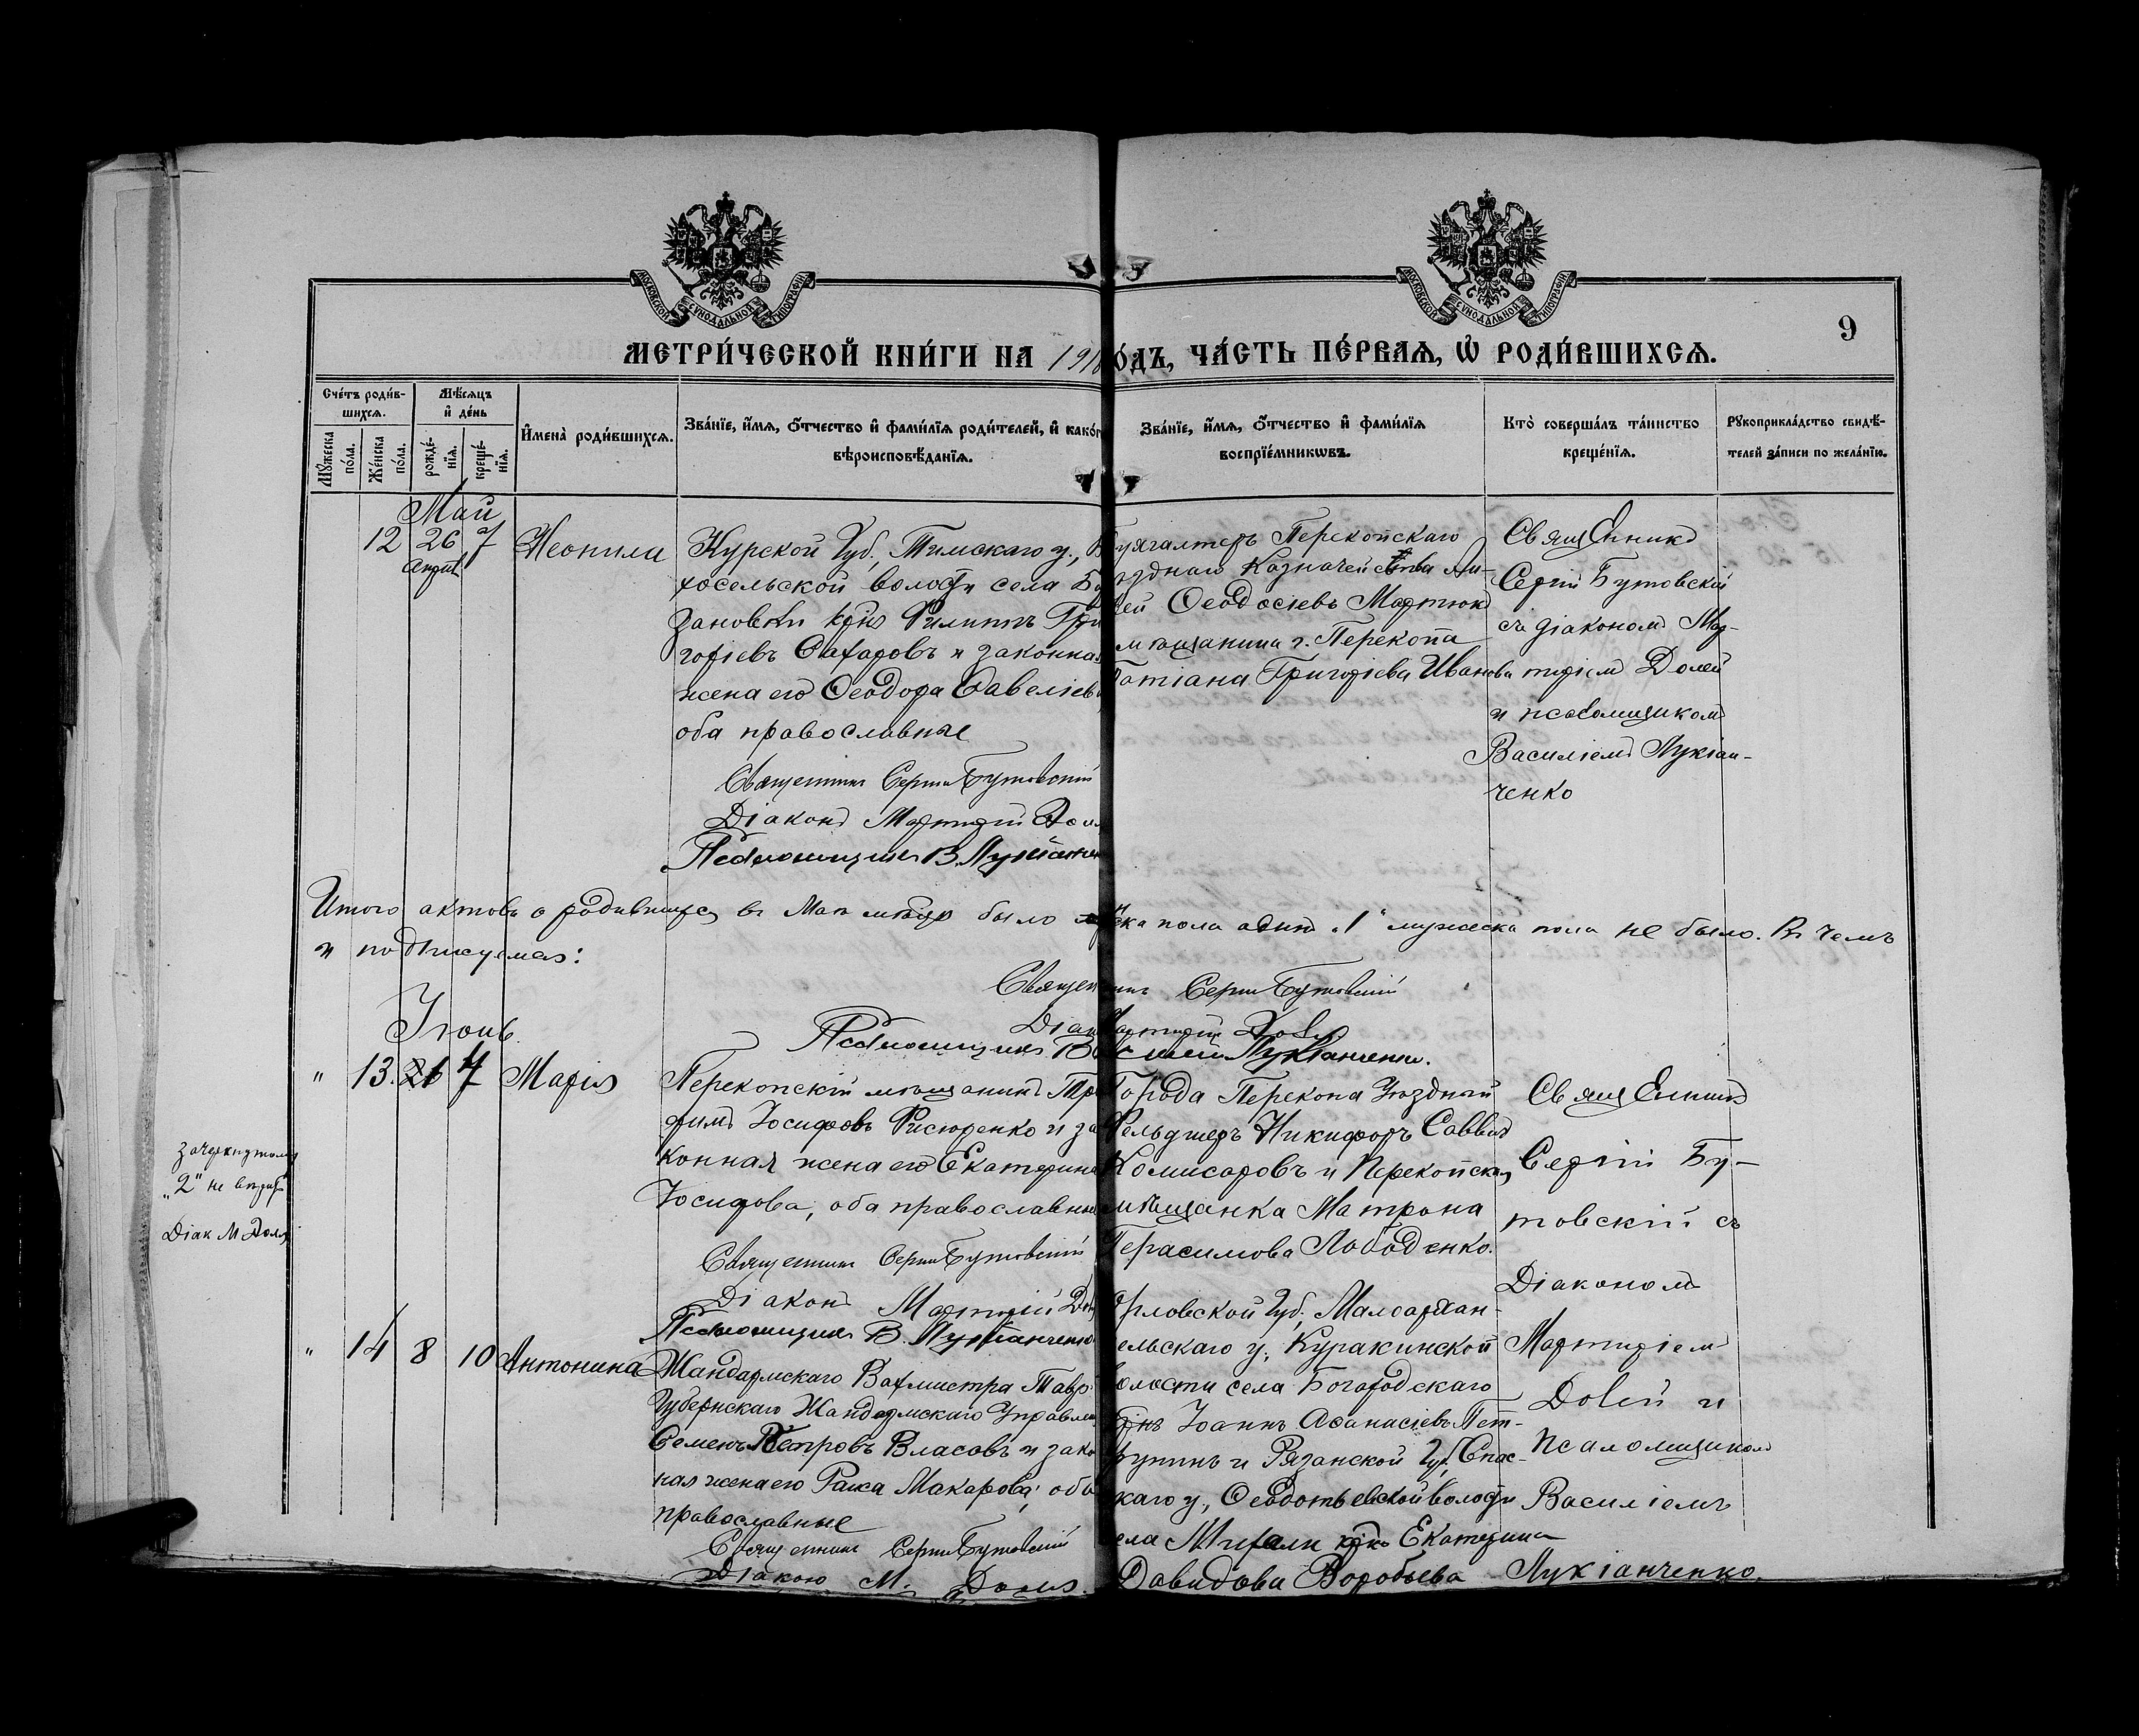 МОСКОВСКОЙ СѴНОДАЛЬНОЙ ТИПОГРАФІИ
МОСКОВСКОЙ СѴНОДАЛЬНОЙ ТИПОГРАФІИ
9
МЕТРИ́ЧЕСКОЙ КНИ́ГИ НА 191 О́ДЪ, ЧА́СТЬ ПЕ́РВАЯ, Ѡ РОДИ́ВШИХСЯ.
Сче́тъ роди́в-
шихся.
Мꙋ́жеска по́ла.
Же́нска по́ла.
Мѣ́сяцъ
и де́нь
рожде́-
нїя.
креще́-
нїя.
И҆мена̀ роди́вшихся.
Зва́нїе, и҆́мя, ѻ҆́тчество и҆ фами́лїя роди́телей, и҆ како́г
вѣроисповѣ́данїя.
Зва́нїе, и҆́мя, ѻ҆́тчество и҆ фами́лїя
воспрїе́мникѡвъ.
Кто̀ соверша́лъ та́инство
креще́нїя.
Рꙋкоприкла́дство свидѣ́-
телей за́писи по жела́нїю.
Май
12 26 7 Неонила
Апрѣл
Курской Губ., Тимскаго у.,
хосельской волости села Бу
зановки крнъ Филиппъ Гри
горіевъ Сахаровъ и законная
жена его Ѳеодора Савеліев
оба православные
Священник Сергий Бутовский
Діаконъ Мартирій Доля
Псаломщик В. Лукіанчен
ухгалтеръ Перекопскаго
ѣзднаго Казначейства
ей Ѳеодосіевъ Мартюк
мѣщанина г. Перекопа
Татіана Григоріева Иванова
Священникъ
Сергій Бутовскій
съ діакономъ Мар-
тиріем Долей
и псаломщиком
Василіемъ Лукіан-
ченко
Итого актовъ о родившихся въ Маѣ мѣсяцѣ было ска пола один „1" мужеска пола не было. Въ чемъ
и подписуемся:
Священ ник Сергий Бутовский
Діак Мартирій Доля
Псаломщик Василій Лукіанченко.
Іюнь.
" 13. 26 7 Марія
Перекопскій мѣщанинъ Тро
фимъ Іосифовъ Рисюренко и за
конная жена его Екатерина
Іосифова, оба православные
Священник Сергий Бутовский
Діаконъ Мартирій Доля
Псаломщик В. Лукіанченко
Города Перекопа Уѣздный
Фельдшеръ Никифоръ Саввинъ
Комисаровъ и Перекопская
мѣщанка Матрона
Герасимова Лободенко.
Священникъ
Сергій Бу-
товскій съ
Діакономъ
Мартиріемъ
Долей и
псаломщикомъ
Василіемъ
Лукіанченко.
зачеркнутому
„2" не вѣрить
Діак М Доля
" 14 8 10 Антонина
Жандармскаго Вахмистра Тавр.
Губернскаго Жандармскаго Управлен
Семенъ Петровъ Власовъ и зако
ная жена его Раиса Макарова, оба
православные
Священник Сергий Бутовский
Діаконъ М. Доля.
Орловской Губ., Малоархан-
ельскаго у., Куракинской
олости села Богородскаго
крнъ Іоаннъ Аѳанасіевъ Пет-
рунинъ и Рязанской Губ., Спас-
каго у., Ѳеодотьевской волости
ела Михали крка Екатерина
Давидова Воробьева